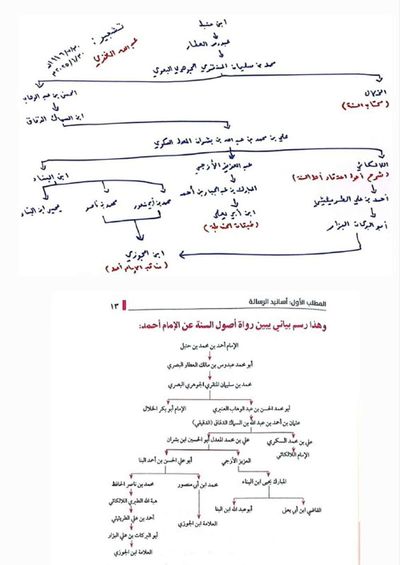 ابن حنبل
عبدوس العطار
محمد بن سليمان المنقري الجوهري البصري
تشجير:
عبد الله العنزي
الخلال
(كتاب السنة)
الحسن بن عبد الوهاب
ابن السماك الدقاق
علي بن محمد بن عبد الله بن بشران المعدل السكري
اللالكائي
(شرح أصول اعتقاد أهل السنة)
عبد العزيز الأزجي
ابن البناء
أحمد بن علي الطريثيثي
المبارك بن عبد الجبار بن أحمد
محمد بن ناصر
يحيى ابن البناء
ابن أبي يعلى
(طبقات الحنابلة)
أبو البركات البزار
ابن الجوزي
(مناقب الإمام أحمد)
المطلب الأول: أسانيد الرسالة
١٣
وهذا رسم بياني يبين رواة أصول السنة عن الإمام أحمد:
الإمام أحمد بن محمد بن حنبل
أبو محمد عبدوس بن مالك العطار البصري
محمد بن سليمان المنقري الجوهري البصري
الإمام أبو بكر الخلال
أبو محمد الحسن بن عبد الوهاب العنبري
عثمان بن أحمد بن عبد الله بن السماك الدقاق (الدقيقي)
علي بن محمد السكري
علي بن محمد المعدل أبو الحسين ابن بشران
الإمام اللالكائي
العزيز الأزجي
أبو علي الحسن بن أحمد البنا
المبارك يحيى ابن البناء
محمد ابن أبي منصور
محمد بن ناصر الحافظ
القاضي ابن أبي يعلى
أبو عبد الله ابن البنا
العلامة ابن الجوزي
هبة الله الطبري اللالكائي
أحمد بن علي الطريثيثي
أبو البركات بن علي البزار
العلامة ابن الجوزي